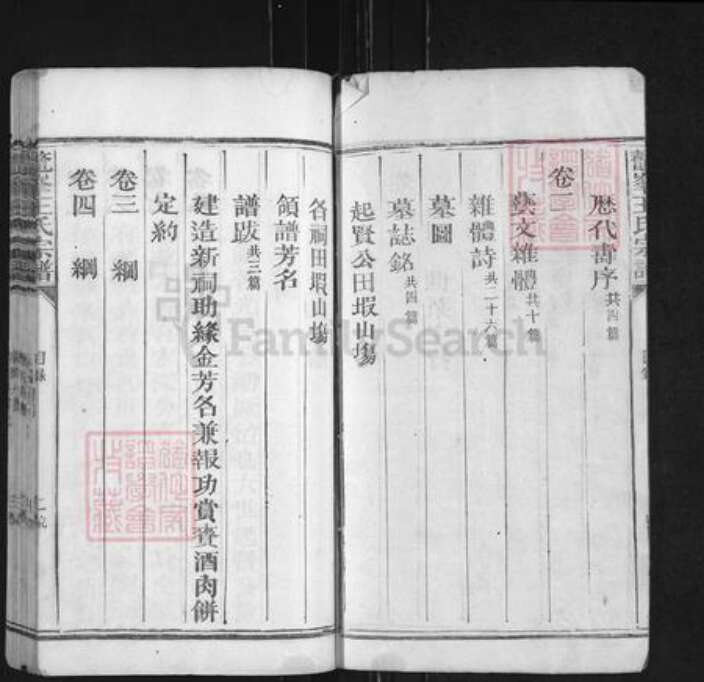 歴代壽序共四篇
卷二
藝文雜體共十篇
雜體詩共二十六篇
墓圖
墓誌銘共四篇
起賢公田塅山塲
各祠田塅山塲
領譜芳名
譜跋共三篇
建造新祠助緣金芳名兼報功賞查酒肉併
定約
卷三 綱
卷四 綱
王氏宗譜
目錄
FamilySearch